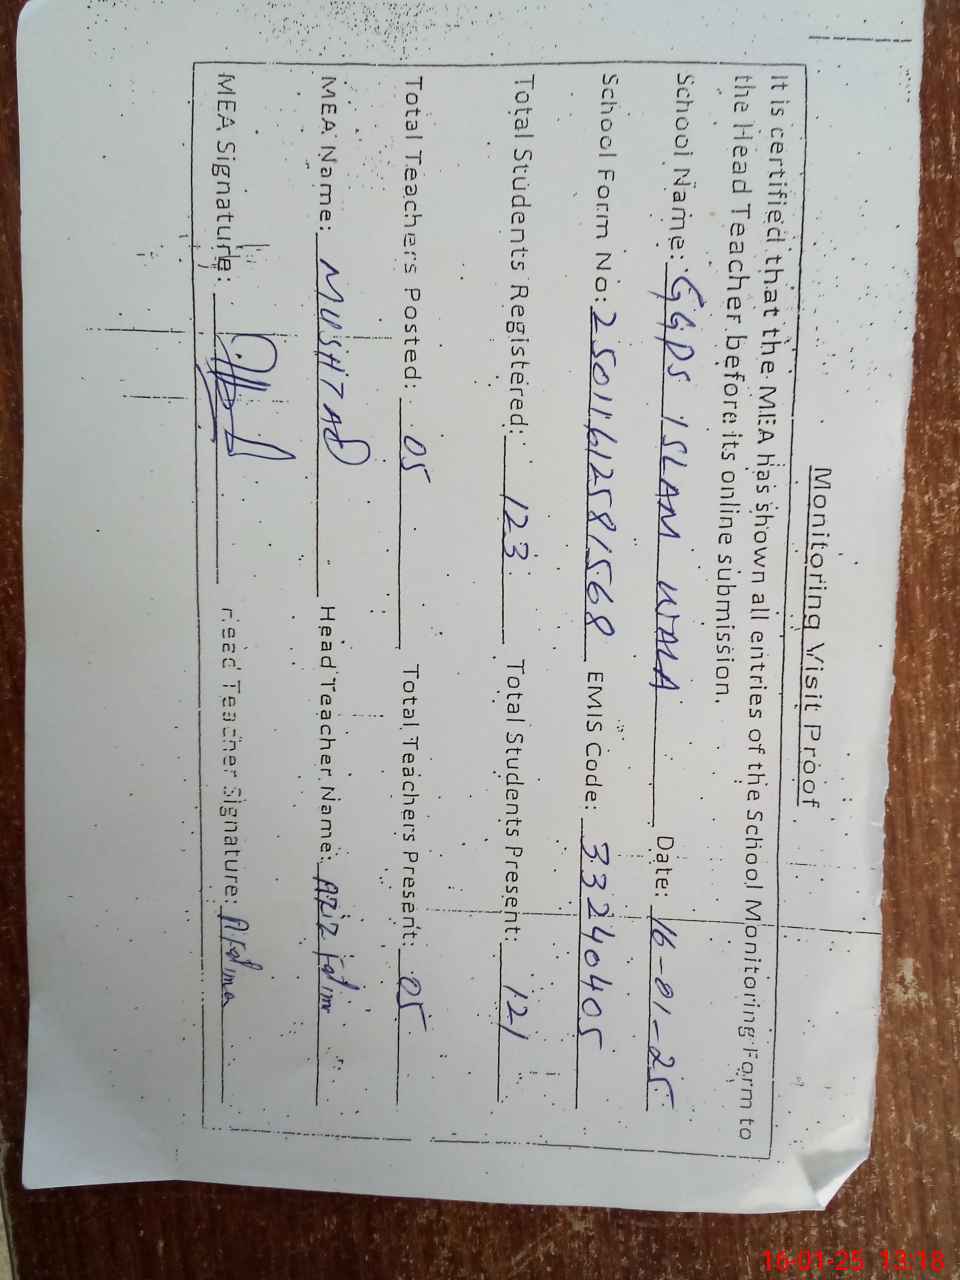 Monitoring Visit Proof
It is certified that the MEA has shown all entries of the School Monitoring Form to
the Head Teacher before its online submission.
School Name: GGPS ISLAM WALA Date: 16-01-25
School Form No: 25011612581568 EMIS Code: 33240405
Total Students Registered: 123 Total Students Present: 121
Total Teachers Posted: 05 Total Teachers Present: 05
MEA Name: MUSHTAQ Head Teacher Name: Aziz Fatima
MEA Signature: Head Teacher Signature: A Fatima
16-01-25 13:18